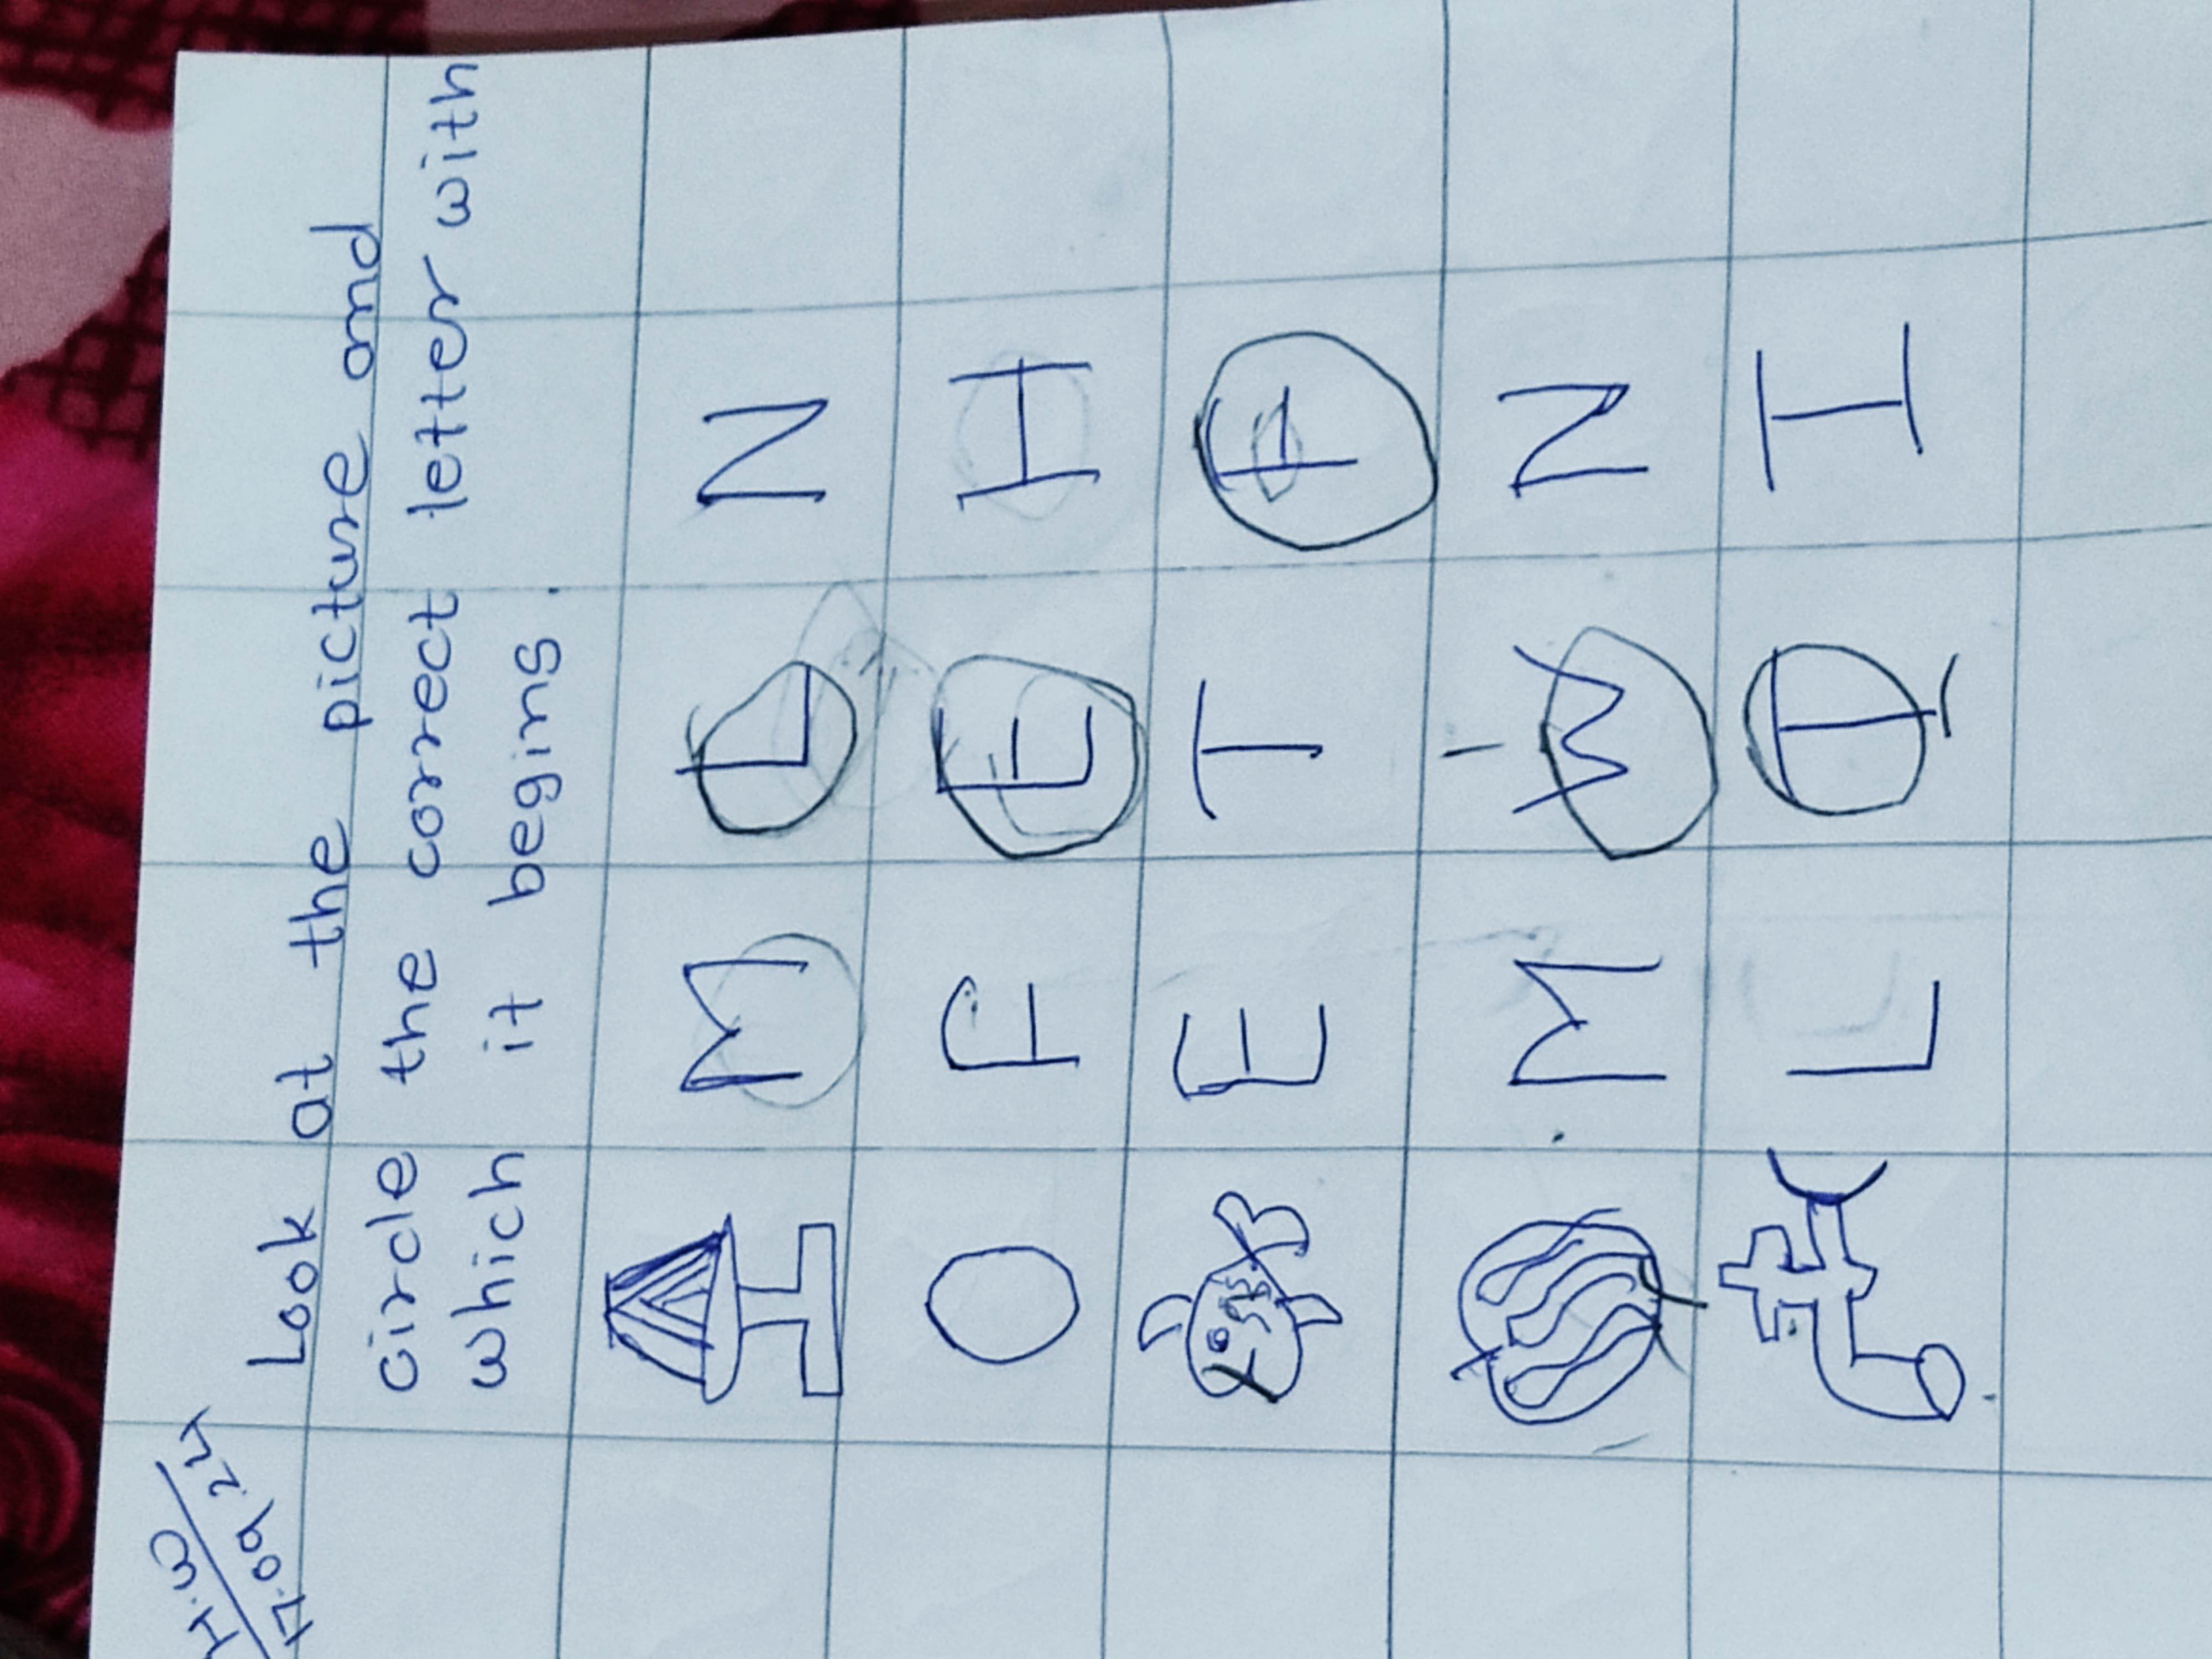 H.W
17.09.24
Look at the picture and
circle the correct letter with
which it begins.
M L N
F E H
E T F
M W N
L T I